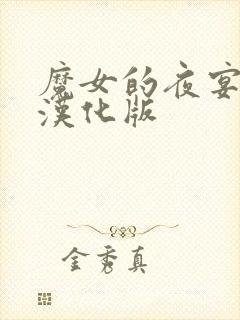 魔女的夜宴
漢化版
金秀真